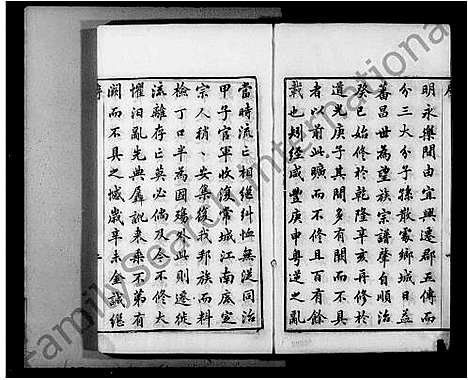 明永樂間由宜興遷郡五傳而
分三大分子孫散處鄉城日益
蕃昌世為望族宗譜肇自順治
癸巳始修於乾隆辛亥再修於
道光庚子其間多有聞而不具
者以前此曠而不修且百有餘
載也矧經咸豐庚申粵逆之亂
當時流亡相繼糾恤無從同治
甲子官軍收復常城江南底定
宗人稍〻安集復我邦族而料
檢丁口半為國殤此則遷徙
流離存亡莫必倘及今不修大
懼汨亂先典訛来乘不第有
闕而不具之憾歲辛未金誠繼
序
familysearch international